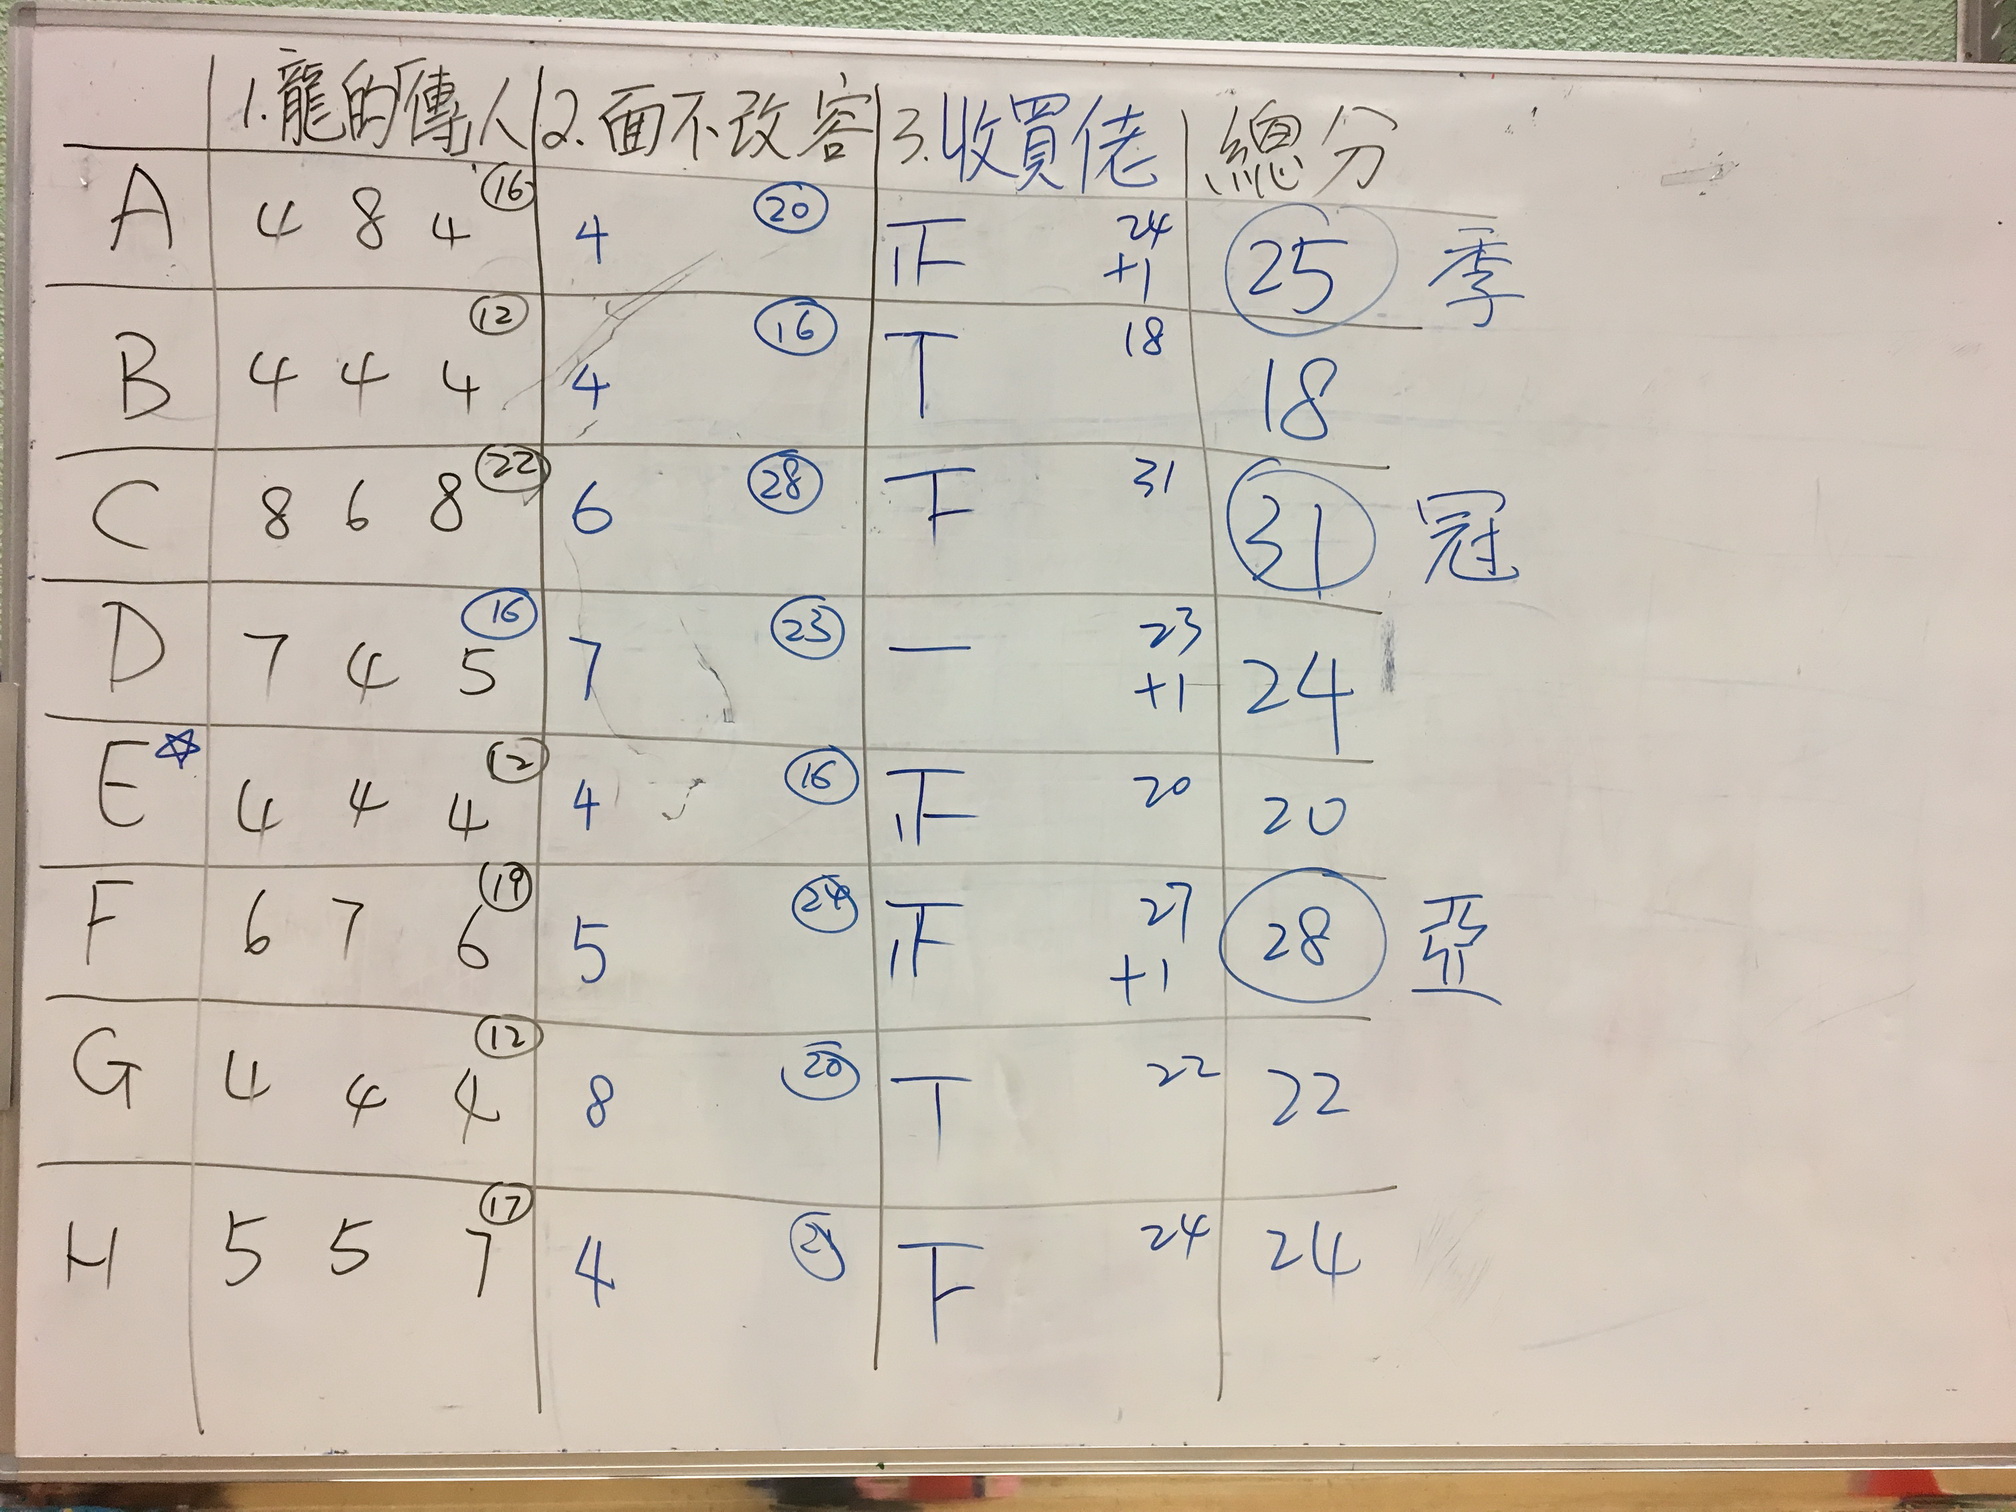 1.龍的傳人 2.面不改容 3.收買佬 總分
A 4 8 4 16 4 20 正 24 +1 25 季
B 4 4 4 12 4 16 T 18 18
C 8 6 8 22 6 28 下 31 31 冠
D 7 4 5 16 7 23 一 23 +1 24
E☆ 4 4 4 12 4 16 正 20 20
F 6 7 6 19 5 24 正 27 +1 28 亞
G 4 4 4 12 8 20 T 22 22
H 5 5 7 17 4 下 24 24